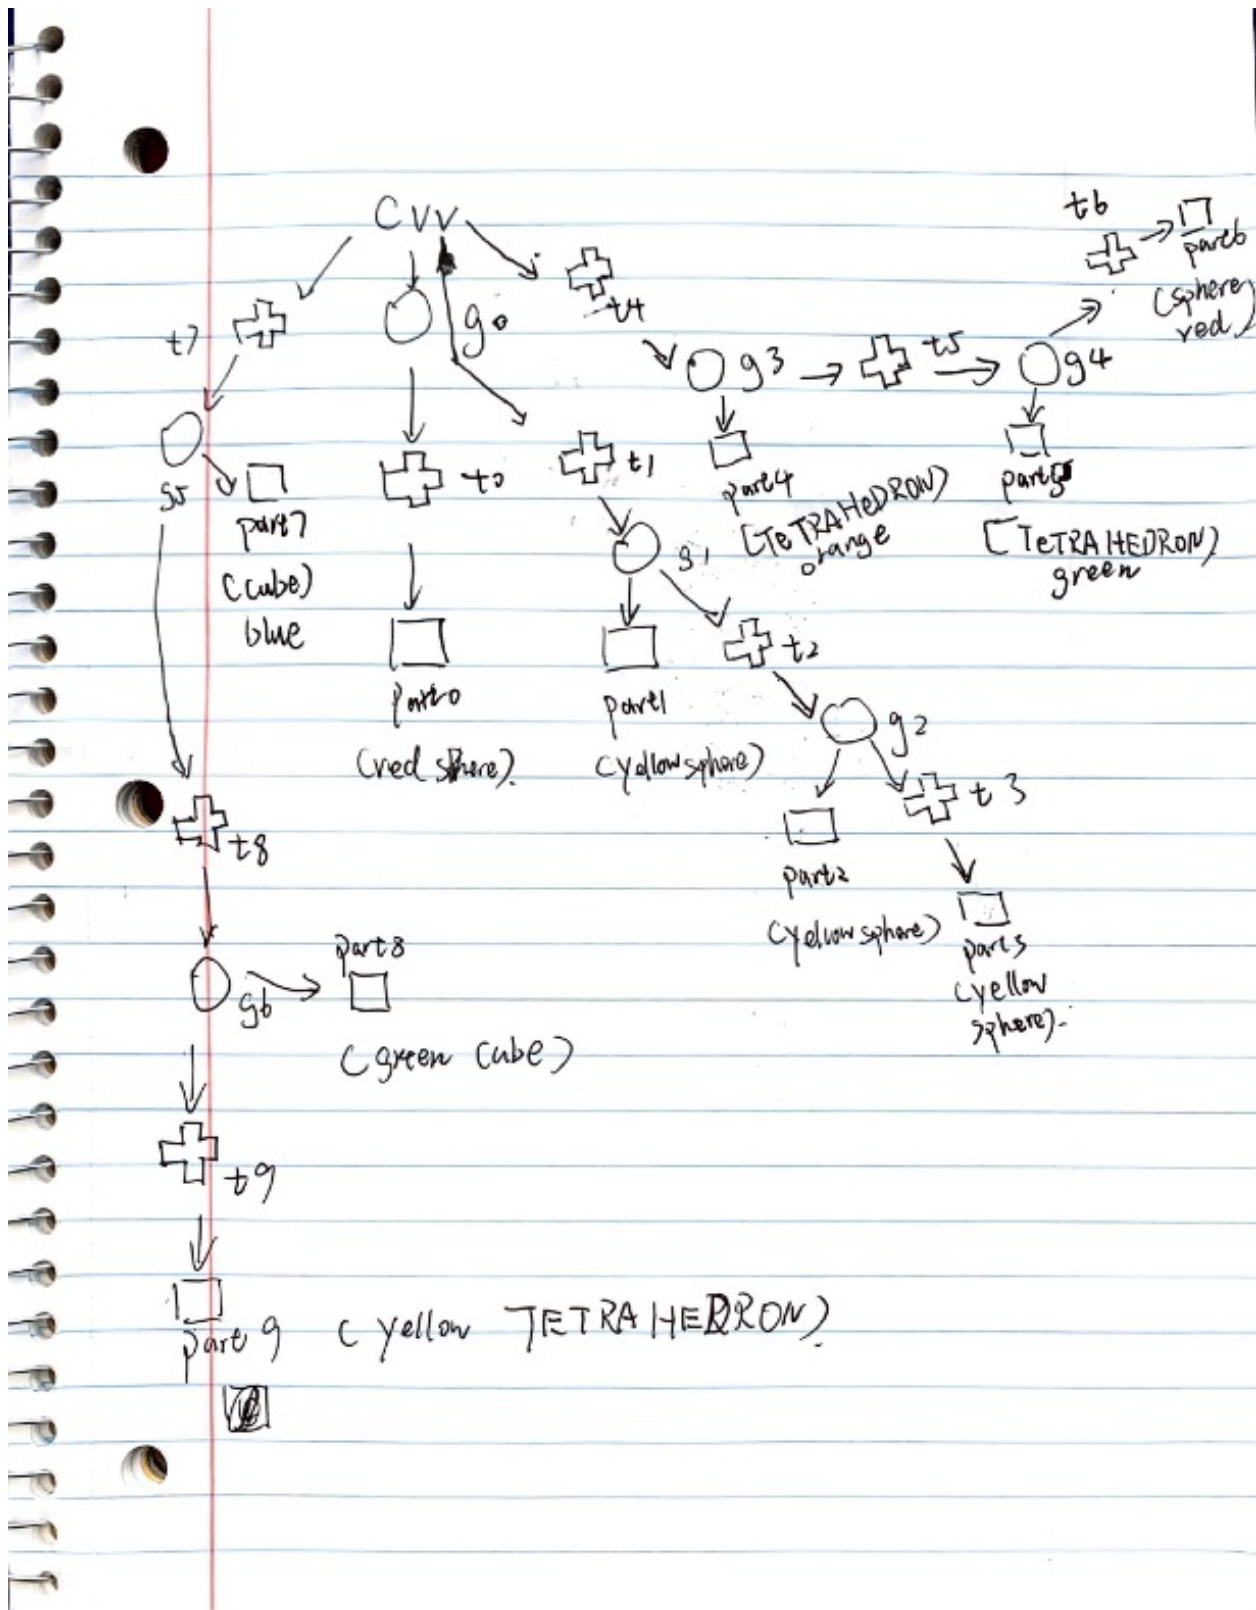 CVV
t6
part6
(sphere
red)
t4
t7
g0
g3
t5
g4
g5
part7
(cube)
blue
t0
t1
part4
[TETRAHEDRON)
orange
part5
[TETRAHEDRON)
green
g1
t2
part0
(red sphere).
part1
(yellow sphere)
g2
t3
t8
part2
(yellow sphere)
(yellow
sphere).
part8
g6
(green cube)
t9
part 9 (yellow TETRAHEDRON)